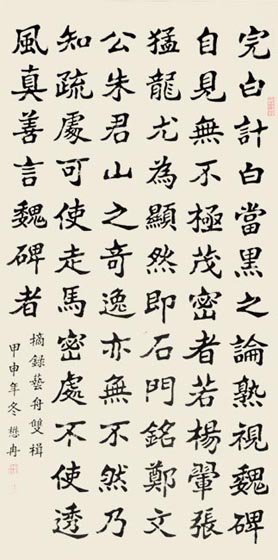 完白計白當黑之論熟視魏碑
自見無不極茂密者若楊翬張
猛龍尤為顯然即石門銘鄭文
公朱君山之奇逸亦無不然乃
知疏處可使走馬密處不使透
風真善言魏碑者
摘錄藝舟雙楫
甲申年冬懋冉